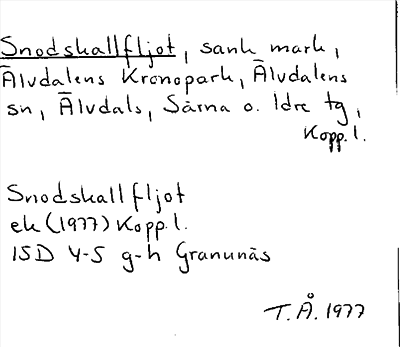 Snodskallfljot, sank mark,
Älvdalens Kronopark, Älvdalens
sn, Älvdals, Särna o. Idre tg,
Kopp.l.
Snodskallfljot
ek (1977) Kopp.l.
15D 4-5 g-h Granunäs
T.Å. 1977